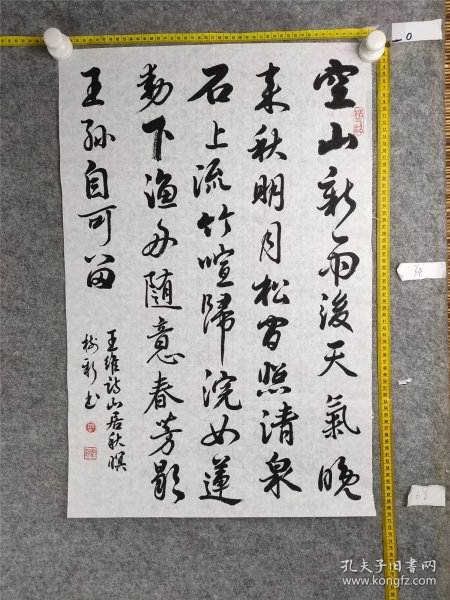 空山新雨後天氣晚
来秋明月松間照清泉
石上流竹喧歸浣女蓮
動下漁舟隨意春芳歇
王孫自可留
王維詩山居秋暝
书
0
68
孔夫子旧书网
www.kongfz.com